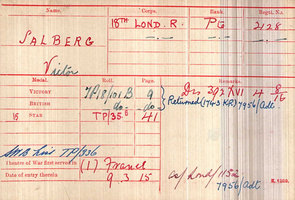 Name. Corps. Rank. Regtl. No.
SALBERG 18TH LOND. R. Pte 2128
Victor
Medal. Roll. Page. Remarks.
VICTORY TP/18/101B 9 Dis 392 XVI 4/8/16
BRITISH do do Returned (1743 KR) 7956/Adt
15 STAR TP/35B 41
Theatre of War first served in (1) France
Date of entry therein 9.3.15
7956/Adt
K. 1380.